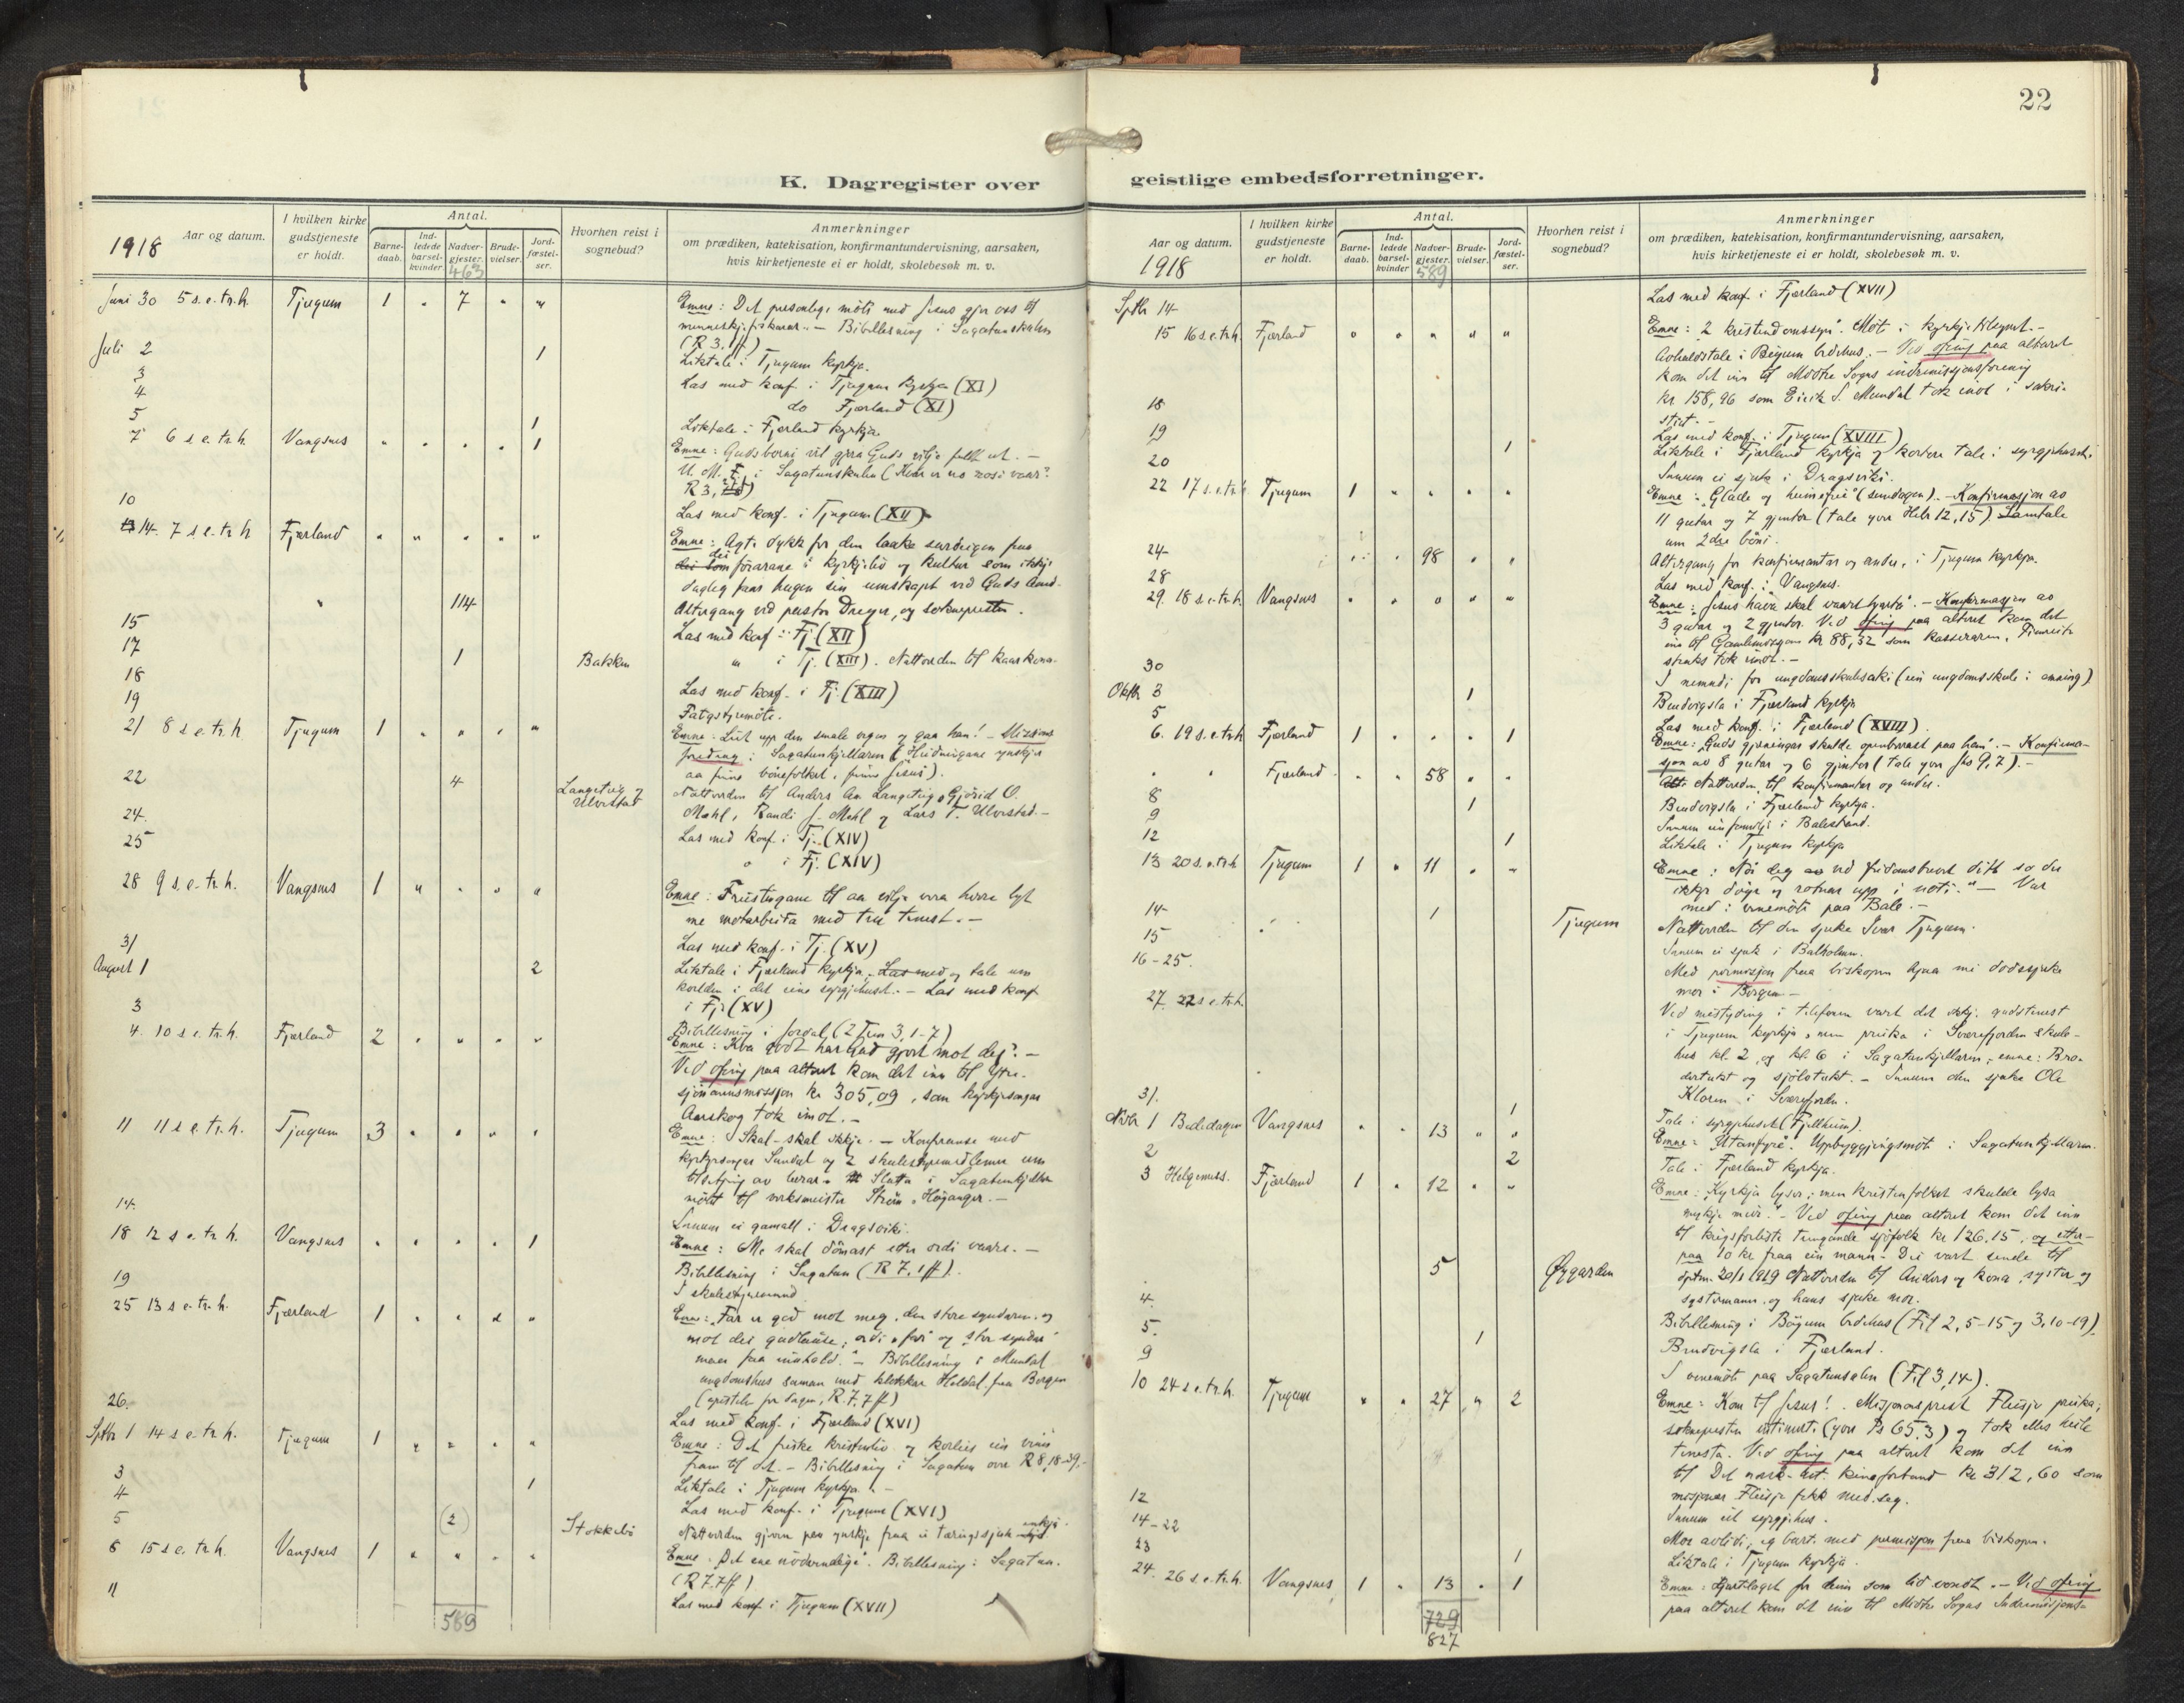 22
K. Dagregister over geistlige embedsforretninger.
1918 Aar og datum.
I hvilken kirke gudstjeneste er holdt.
Antal.
Barnedaab.
Indledede barselkvinder.
Nadvergjester.
Brudevielser.
Jordfæstelser.
Hvorhen reist i sognebud?
Anmerkninger
om prædiken, katekisation, konfirmantundervisning, aarsaken,
hvis kirketjeneste ei er holdt, skolebesøk m. v.
463
Juni 30 5 s. e. tr. h. Tjugum 1 " 7 " " Emne: Det personlege möte med Jesus gjer oss til
menneskjefiskarar. — Bibellesning i Sagatunskulen
(R 3. 1ff)
Juli 2 1 Liktale i Tjugum kyrkja.
3 Las med konf. i Tjugum kyrkja (XI)
4 do Fjærland (XI)
5 1 Liktale i Fjærland kyrkja
7 6 s. e. tr. h. Vangsnes " " " " 1 Emne: Gudsborni vil gjera Guds vilje fullt ut. —
U. M. F. i Sagatunskulen
R 3,
10 Las med konf. i Tjugum (XII)
14. 7 s e tr h Fjærland " " " " " Emne: Agta dykk for den laake surdeigen fraa
dei förarane i kyrkjeliv og kultur som ikkje
dagleg faar hugen sin umskapt ved Guds Aand.
" 114 Altergang ved pastor Dreyer, og soknepresten.
15 Las med konf. i Fj. (XII)
17 1 Bakken " i Tj. (XIII). Nattverden til kaarkona
18 Las med konf. i Fj. (XIII)
19 Fatgstyremöte.
21 8 s e. tr. h Tjugum 1 " " " " Emne: Leit upp den smale vegen og gaa han! — Missions
foredrag i Sagatunkjellaren (Heidningane ynskjer
aa finna bönefolket, finna Jesus).
22 4 Langeteig og Ulvestad Nattverden til Anders An. Langeteig, Gjörid O.
Mæhl, Randi J. Mæhl og Lars T. Ulvestad. —
24. Las med konf. i Tj. (XIV)
25 " i Fj. (XIV)
28 9 s. e. tr. h. Vangsnes 1 " " " " Emne: Freistingane til aa vilja vera herre lyt
me motarbeida med tru tenest. —
31 Las med konf. i Tj. (XV)
August 1 2 Liktale i Fjærland kyrkja. Las med og tale um
kvelden i det eine syrgjehuset. — Las med konf
i Fj. (XV)
3 Bibellesning i Jordal (2 Tim 3, 1-7)
4. 10 s e. tr. h. Fjærland 2 " " " " Emne: Kva godt har Gud gjort mot deg? —
Ved ofring paa altaret kom det inn til Ytre-
sjömannsmissjon kr 305,09, som kyrkjesongar
Aarskog tok imot. —
11 11 s e. tr. h. Tjugum 3 " " " " Emne: Skal – skal ikkje. — Konferanse med
kyrkjesongar Sundal og 2 skulestyremedlemer um
tilsetjing av lærar. Slutta i Sagatunkjellar
möte til verksmeister Ström, Höyanger. —
14. Innum ei gamall i Dragsviki.
18 12 s e tr h. Vangsnes " " " " 1 Emne: Me skal dömast etter ordi vaare. —
Bibellesning i Sagatun (R 7, 1 ff).
19 I skulestyremund
25 13 s e. tr. h. Fjærland 1 " " " " Emne: "Far er god mot meg, den store syndaren, og
mot dei gudlause; ordi "far" og "stor syndar"
maa faa innhald." — Bibellesning i Mundal
ungdomshus saman med klokkar Heldal fraa Bergen
(epistelen for dagen, R. 7, 7 ff)
26. Las med konf. i Fjærland (XVI)
Septbr 1 14 s e tr. h. Tjugum 1 " " " " Emne: Det friske kristenliv og korleis ein vinn
fram til det. — Bibellesning i Sagatun over R 8,18-39.-
3 1 Liktale i Tjugum kyrkja. —
4 Las med konf. i Tjugum (XVI)
5 (2) Stokkebö Nattverden gjeven paa ynskje fraa ei tæringssjuk enkja.
8 15 s e. tr. h. Vangsnes 1 " " " " Emne: Det ene nödvendige. Bibellesning i Sagatun.
(R 7.7ff)
11 Las med konf. i Tjugum (XVII)
589
Aar og datum. 1918
I hvilken kirke gudstjeneste er holdt.
Antal.
Barnedaab.
Indledede barselkvinder
Nadvergjester.
Brudevielser.
Jordfæstelser.
Hvorhen reist i sognebud?
Anmerkninger
om prædiken, katekisation, konfirmantundervisning, aarsaken,
hvis kirketjeneste ei er holdt, skolebesøk m. v.
589
Sptbr 14 Las med konf. i Fjærland (XVII)
15 16 s. e. tr. h. Fjærland " " " " " Emne: 2 kristendomssyn. Möte i kyrkjetilsynet. —
Avholdstale i Böyum bedehus. — Ved ofring paa altaret
kom det inn til Midtre Sogns indremisjonsforening
kr 158,96 som Eirik S. Mundal tok imot i sakri-
stiet. —
18 Las med konf. i Tjugum (XVIII)
19 1 Liktale i Fjærland kyrkja og kortere tale i syrgjehuset.
20 Innum ei sjuk i Dragsviki.
22 17 s. e. tr. h Tjugum 1 " " " " Emne: "Glade og heimefrie" (sundagen). — Konfirmasjon av
11 gutar og 7 gjentor (tale yver Hebr 12,15). Samtale
um 2dre böni.
24 98 Altergang for konfirmantar og andre, i Tjugum kyrkja.
28 Las med konf. i Vangsnes.
29. 18 s. e. tr. h. Vangsnes " " " " " Emne: — Konfirmasjon av
3 gutar og 2 gjentor. Ved ofring paa altaret kom det
inn til Gamlemisjonen kr 88,32 som kasseraren,
straks tok imot. —
30 I nemndi for ungdomsskulesaki (ein ungdomsskule i emning)
Oktbr 3 1 Brudvigsla i Fjærland kyrkja
5 Las med konf. i Fjærland (XVIII).
6. 19 s. e. tr. h Fjærland 1 " " " 1 Emne: "Guds gjerningar skulde openberrast paa ham". — Konfirma-
sjon av 8 gutar og 6 gjentor (tale yver Jos 9,7). —
" " Fjærland " " 58 " " Nattverden til konfirmantar og andre.
8 1 Brudvigsla i Fjærland kyrkja.
9 Innum ein familje i Balestrand.
12 1 Liktale i Tjugum kyrkja
13 20 s. e. tr. h Tjugum 1 " 11 " " Emne: ditt so du
ikkje döyr og rotnar upp i noti." — Var
med i venemöte paa Bale. —
14 1 Tjugum Nattverden til den sjuke Ivar Tjugum.
15 Innum ei sjuk i Balholm.
16-25. Med permisjon fraa biskopen hjaa mi dödssjuke
mor i Bergen —
27. 22 s e. tr. h. Ved mistyding i telefonen vart det ikkje gudstenest
i Tjugum kyrkja, men preika i Sværefjorden skule-
hus kl. 2, og kl. 6 i Sagatunkjellaren, emne: Bro-
dertukt og sjölvtukt. — Innum den sjuke Ole
Kloren i Sværefjorden.
31. 1 Tale i syrgjehuset (Fjellheim).
Novbr 1 Bededagen Vangsnes " " 13 " " Emne: "Utanfyre". Uppbyggjingsmöte i Sagatunkjellaren.
2 2 Tale i Fjærland kyrkja.
3 Helgemess. Fjærland 1 " 12 " " Emne: Kyrkja lyser; men kristenfolket skulde lysa
mykje meir." — Ved ofring paa altaret kom det inn
til krigsforliste trengande sjöfolk kr 126.15, og etter-
paa 10 kr fraa ein mann. Dei vart sende til
20/1 1919
5 Øygarden Nattverden til Anders og kona, syster og
systermann, og hans sjuke mor.
4. Bibellesning i Böyum bedehus (Fil 2, 5-15 og 3, 10-19).
5. 1 Brudvigsla i Fjærland.
9 I venemöte paa Sagatunsalen (Fil 3,14).
10 24 s e. tr. h. Tjugum " " 27 " 2 Emne: Kom til Jesus! Misjonsprest Fleisje preika;
soknepresten (yver Ps 65.3) og tok elles heile
tenesta. Ved ofring paa altaret kom det inn
til Det norsk-lut. kinaforbund kr 312,60 som
misjonær Fleisje fekk med seg.
12 Innum eit syrgjehus.
14-22 Mor avlidi; eg burt med permisjon fraa biskopen.
23 1 Liktale i Tjugum kyrkja.
24. 26 s. e. tr. h. Vangsnes 1 " 13 " 1 Emne: Hjartelaget for deim som lid vondt. — Ved ofring
paa altaret kom det inn til Midtre Sogns Indremisjons-
729
827